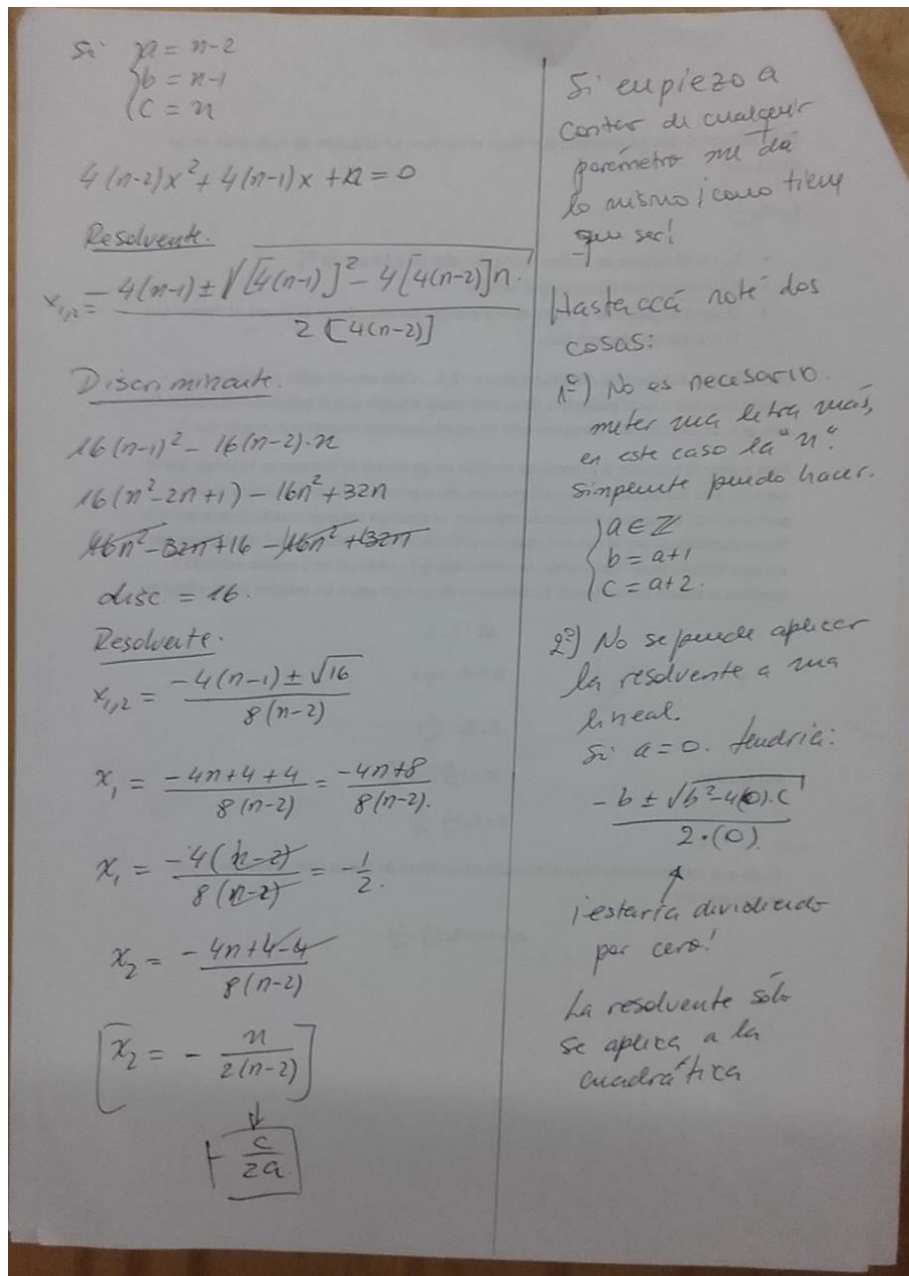 Si a = n-2
b = n-1
c = n
4(n-2)x² + 4(n-1)x + n = 0
Resolvente.
x₁,₂ = -4(n-1) ± √[4(n-1)]² - 4[4(n-2)]n
2[4(n-2)]
Discriminante.
16(n-1)² - 16(n-2)·n
16(n²-2n+1) - 16n² + 32n
16n² - 32n + 16 - 16n² + 32n
disc = 16.
Resolvente.
x₁,₂ = -4(n-1) ± √16
8(n-2)
x₁ = -4n+4+4 = -4n+8
8(n-2) 8(n-2).
x₁ = -4(n-2) = -1
8(n-2) 2.
x₂ = -4n+4-4
8(n-2)
x₂ = - n
2(n-2)
- c
2a
Si empiezo a
contar de cualquier
parámetro me da
lo mismo ¡como tiene
que ser!
Hasta acá noté dos
cosas:
1º) No es necesario
meter una letra más,
en este caso la "n".
simpemte puedo hacer.
a ∈ ℤ
b = a+1
c = a+2.
2º) No se puede aplicar
la resolvente a una
lineal.
Si a=0. tendría:
-b ± √b²-4(0).c
2·(0)
¡estaría dividiendo
por cero!
La resolvente sólo
se aplica a la
cuadrática